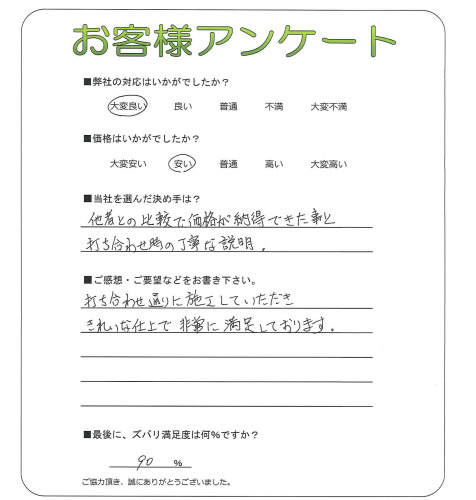 お客様アンケート
■弊社の対応はいかがでしたか？
大変良い 良い 普通 不満 大変不満
■価格はいかがでしたか？
大変安い 安い 普通 高い 大変高い
■当社を選んだ決め手は？
他者との比較で価格が納得できた事と
打ち合わせ時の丁寧な説明。
■ご感想・ご要望などをお書き下さい。
打ち合わせ通りに施工していただき
きれいな仕上で非常に満足しております。
■最後に、ズバリ満足度は何%ですか？
90 %
ご協力頂き、誠にありがとうございました。